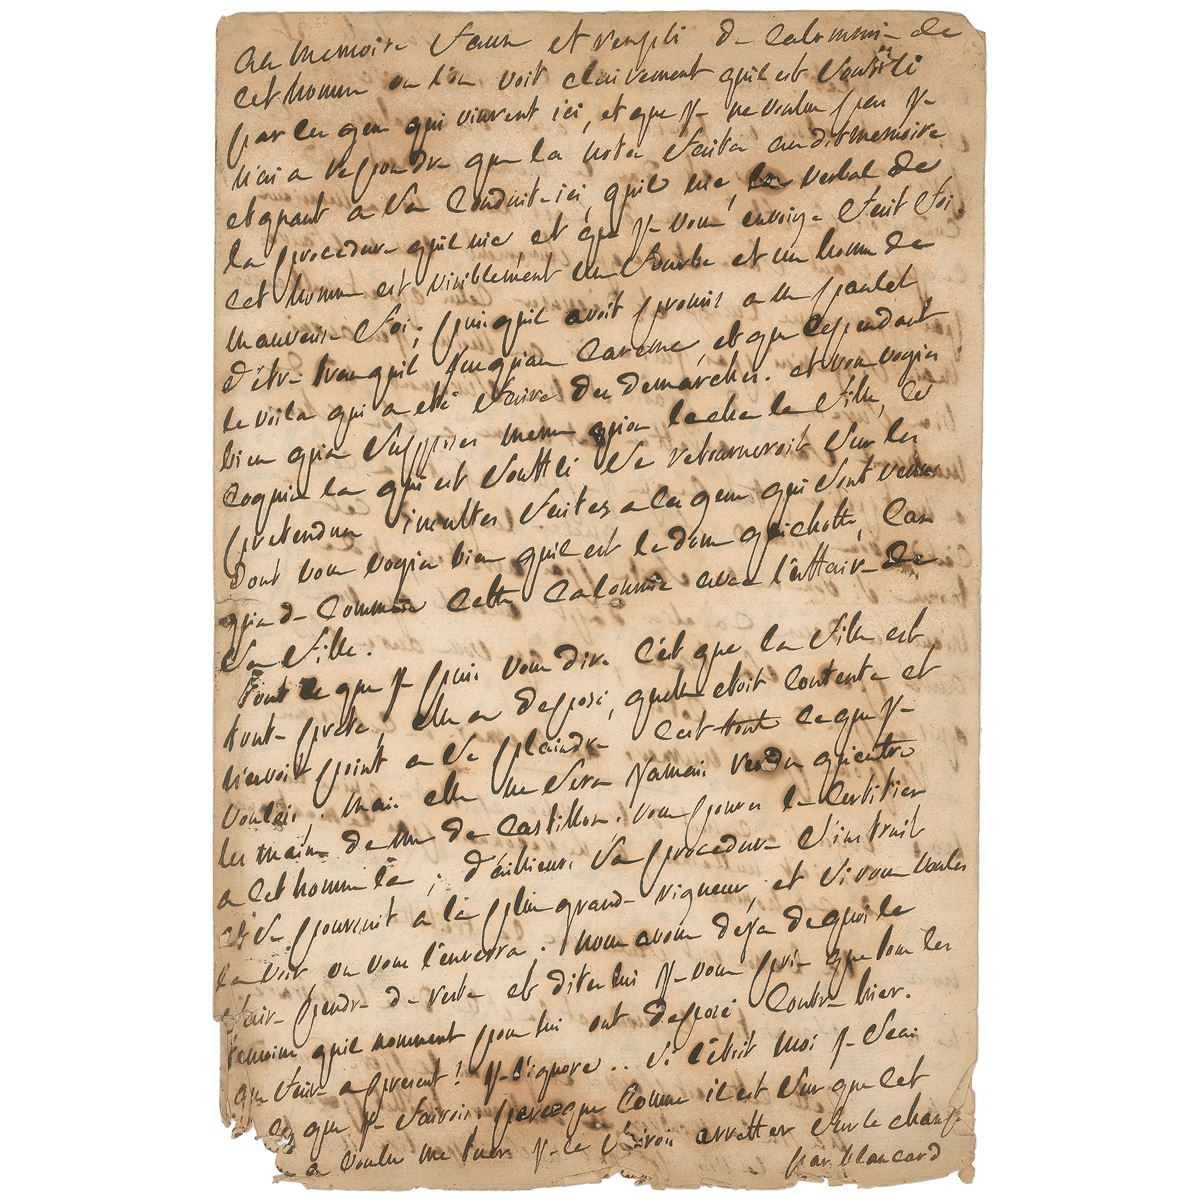 au memoire faux et rempli de calomnie de
cet homme ou l'on voit clairement quil est soutili
par les gens qui vinrent ici, et que je ne voulu pas je
n'ai a repondre que la notte faite au dit memoire
et quant a sa conduite ici, quil nie, le verbal de
la procedure quil nie et que je vous envoye fait foi
cet homme est visiblement un fourbe et un homme de
mauvaise foi, puis quil avoit promis a
d'etre tranquil jusquau careme, et que cependant
le voila qui a eté faire des demarches. et vous voyes
bien quen supposes meme quon lache la fille, ce
coquin la qui est soutili se retourneroit sur les
pretendues insultes faites a les gens qui sont venus
dont vous voyes bien quil est le dom quichotte, car
qua de commun cette calomnie avec l'affaire de
sa fille.
Tout ce que je puis vous dire c'est que la fille est
toute prete, elle a deposé, quelle etoit contente et
n'avoit point a se plaindre c'est tout ce que je
voulois mais elle ne sera jamais rendu quentre
les mains de mr de Castillon. vous pouves le certifier
a cet homme la; d'ailleurs sa procedure s'instruit
et se poursuit a la plus grande rigueur, et si vous voules
la voir on vous l'enverra. nous avons deja de quoi le
faire pendre de reste et dites lui je vous prie que tous les
temoins quil nomment pour lui ont deposé contre hier.
que faire a present? je l'ignore.. si c'etoit moi je scai
ce que je fairois parceque comme il est sur que cet
a voulu me tuer je le fairois arretter sur le champ
par blancard